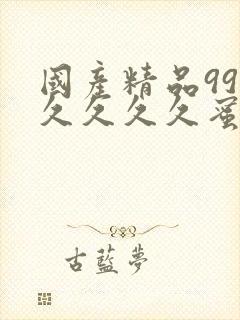 國產精品99
久久久久蜜
古藍夢